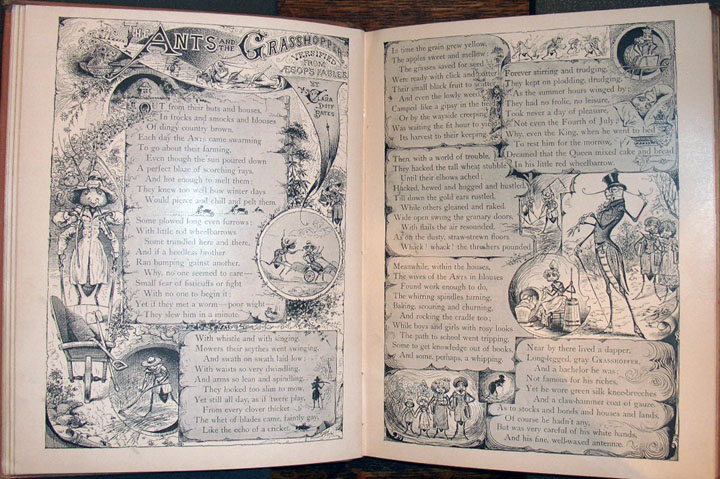 THE ANTS AND THE GRASSHOPPER
VERSIFIED
FROM
ÆSOP'S FABLES
BY
CLARA
DOTY
BATES
OUT from their huts and houses,
In frocks and smocks and blouses
Of dingy country brown,
Each day the ANTS came swarming
To go about their farming.
Even though the sun poured down
A perfect blaze of scorching rays,
And hot enough to melt them;
They knew too well how winter days
Would pierce and chill and pelt them.
Some plowed long even furrows;
With little red wheelbarrows
Some trundled here and there,
And if a heedless brother
Ran bumping 'gainst another,
Why, no one seemed to care—
Small fear of fisticuffs or fight
With no one to begin it;
Yet if they met a worm—poor wight—
They slew him in a minute.
With whistle and with singing
Mowers their scythes went swinging,
And swath on swath laid low;
With waists so very dwindling,
And arms so lean and spindling,
They looked too slim to mow.
Yet still all day, as if 'twere play,
From every clover thicket
The whet of blades came, faintly gay,
Like the echo of a cricket.
In time the grain grew yellow,
The apples sweet and mellow;
The grasses saved for seed
Were ready with click and clatter
Their small black fruit to scatter
And even the lowly weed
Camped like a gipsy in the
Or by the wayside creeping
Was waiting the fit hour to
In harvest to their keeping.
Then, with a world of trouble,
They hacked the tall wheat stubble
Until their elbows ached;
Hacked, hewed and hugged and hustled,
Till down the gold ears rustled,
While others gleaned and raked.
Wide open swung the granary doors,
With flails the air resounded,
As on the dusty, straw-strewn floors
Whack! whack! the threshers pounded.
Meanwhile, within the houses,
The wives of the ANTS in blouses
Found work enough to do,
The whirring spindles turning,
Baking, scouring and churning,
And rocking the cradle too;
While boys and girls with rosy looks
The path to school went tripping,
Some to get knowledge out of books,
And some, perhaps, a whipping.
Forever stirring and trudging,
They kept on plodding, drudging,
As the summer hours winged by;
They had no frolic, no leisure,
Took never a day of pleasure,
Not even the Fourth of July.
Why, even the King, when he went to bed
To rest him for the morrow,
Dreamed that the Queen mixed cake and bread
In his little red wheelbarrow.
Near by there lived a dapper,
Long-legged, gray GRASSHOPPER,
And a bachelor he was;
Not famous for his riches,
Yet he wore green silk knee-breeches
And a claw-hammer coat of gauze.
As to stocks and bonds and houses and lands,
Of course he hadn't any,
But was very careful of his white hands,
And his fine, well-waxed antennæ.